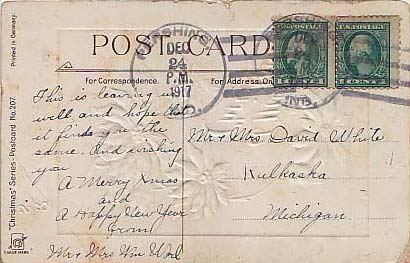 POST CARD
For Correspondence.
For Address Only
DEC
24
P.M.
1917
This is leaving us
well and hope that
it finds you the
same. and wishing
you
A Merry Xmas
and
A Happy New Year
from
Mr & Mrs Wm
Mr & Mrs David White
Kalkaska
Michigan
"Christmas" Series - Postcard No. 207.
Printed in Germany.
TRADE MARK